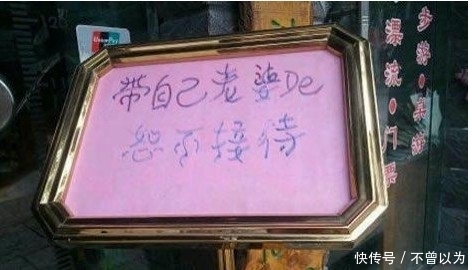 带自己老婆De
恕不接待
UnionPay
漂流·门票
步游·桌游
快传号／不曾以为